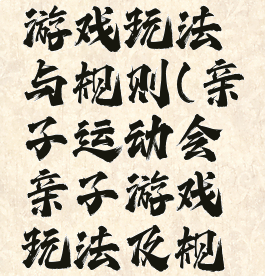 游戏玩法
与规则(亲
子运动会
亲子游戏
玩法及规